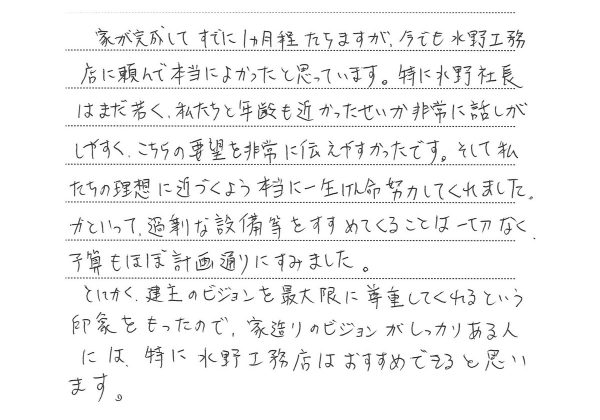 家が完成してすでに1ヵ月経たちますが、今でも水野工務
店に頼んで本当によかったと思っています。特に水野社長
はまだ若く、私たちと年齢も近かったせいか非常に話しが
しやすく、こちらの要望を非常に伝えやすかったです。そして私
たちの理想に近づくよう本当に一生けん命努力してくれました。
かといって、過剰な設備等をすすめてくることは一切なく、
予算もほぼ計画通りにすみました。
とにかく、建主のビジョンを最大限に尊重してくれるという
印象をもったので、家造りのビジョンがしっかりある人
には、特に水野工務店はおすすめできると思い
ます。